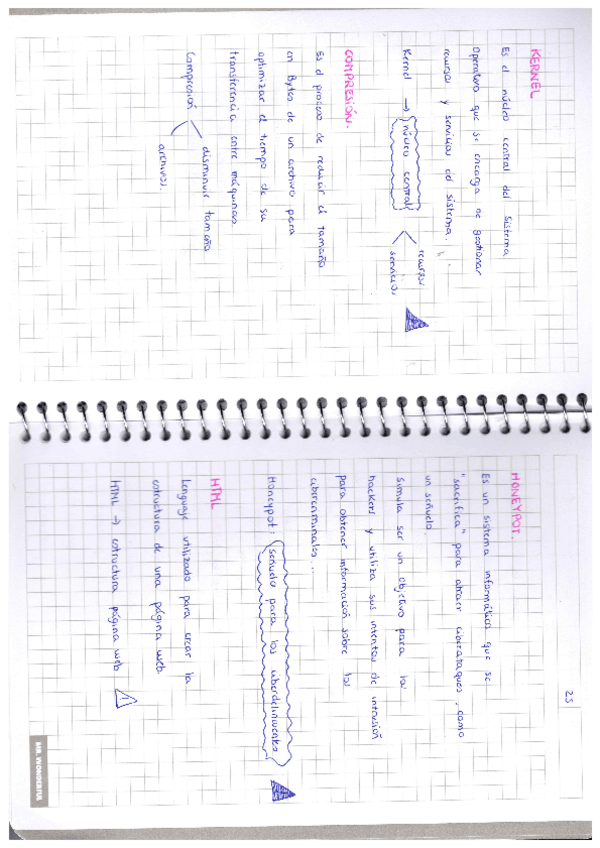 KERNEL
Es el núcleo central del Sistema
Operativo que se encarga de gestionar
recursos y servicios del sistema.
Kernel → núcleo central
recursos
servicios
COMPRESIÓN.
Es el proceso de reducir el tamaño
en Bytes de un archivo para
optimizar el tiempo de su
transferencia entre máquinas
Compresión
disminuir tamaño
archivos.
25
HONEYPOT.
Es un sistema informático que se
"sacrifica" para atraer ciberataques, como
un señuelo.
Simula ser un objetivo para los
hackers y utiliza sus intentos de intrusión
para obtener información sobre los
cibercriminales...
Honeypot: señuelo para los ciberdelincuentes
HTML
Lenguaje utilizado para crear la
estructura de una página web
HTML → estructura página web
1
MR. WONDERFUL